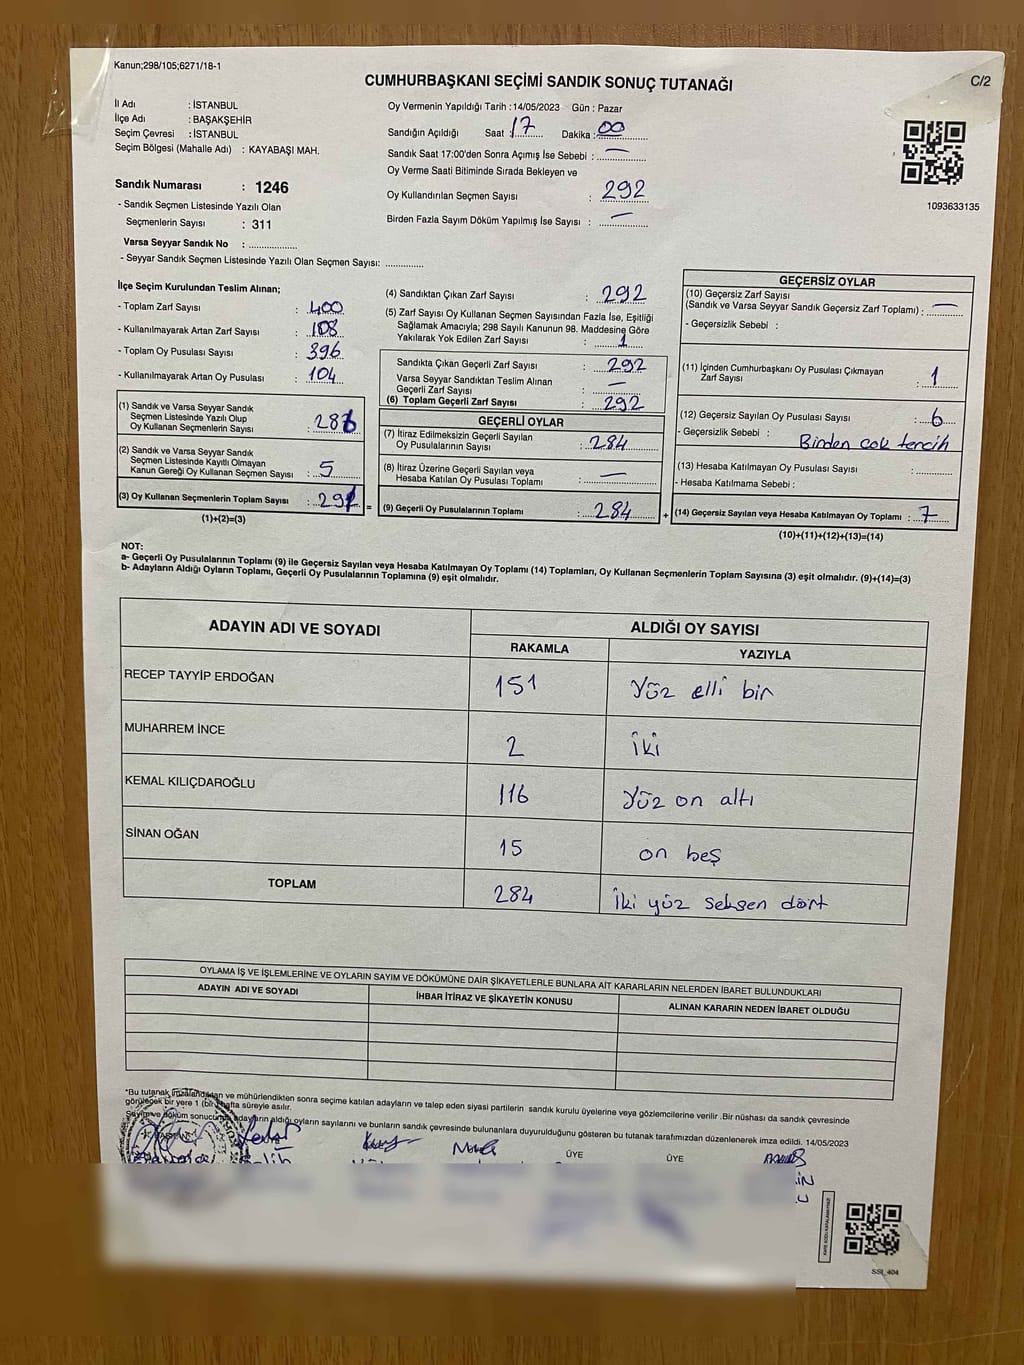 Kanun;298/105;6271/18-1
CUMHURBAŞKANI SEÇİMİ SANDIK SONUÇ TUTANAĞI
C/2
İl Adı : İSTANBUL
İlçe Adı : BAŞAKŞEHİR
Seçim Çevresi : İSTANBUL
Seçim Bölgesi (Mahalle Adı) : KAYABAŞI MAH.
Sandık Numarası : 1246
- Sandık Seçmen Listesinde Yazılı Olan
Seçmenlerin Sayısı : 311
Varsa Seyyar Sandık No : ..................
- Seyyar Sandık Seçmen Listesinde Yazılı Olan Seçmen Sayısı: ..............
Oy Vermenin Yapıldığı Tarih :14/05/2023 Gün : Pazar
Sandığın Açıldığı Saat : 17 Dakika : 00
Sandık Saat 17:00'den Sonra Açımış İse Sebebi : —
Oy Verme Saati Bitiminde Sırada Bekleyen ve
Oy Kullandırılan Seçmen Sayısı : 292
Birden Fazla Sayım Döküm Yapılmış İse Sayısı : —
1093633135
İlçe Seçim Kurulundan Teslim Alınan;
- Toplam Zarf Sayısı : 400
- Kullanılmayarak Artan Zarf Sayısı : 108
- Toplam Oy Pusulası Sayısı : 396
- Kullanılmayarak Artan Oy Pusulası : 104
(1) Sandık ve Varsa Seyyar Sandık
Seçmen Listesinde Yazılı Olup
Oy Kullanan Seçmenlerin Sayısı : 286
(2) Sandık ve Varsa Seyyar Sandık
Seçmen Listesinde Kayıtlı Olmayan
Kanun Gereği Oy Kullanan Seçmen Sayısı : 5
(3) Oy Kullanan Seçmenlerin Toplam Sayısı : 291 =
(1)+(2)=(3)
(4) Sandıktan Çıkan Zarf Sayısı : 292
(5) Zarf Sayısı Oy Kullanan Seçmen Sayısından Fazla İse, Eşitliği
Sağlamak Amacıyla; 298 Sayılı Kanunun 98. Maddesine Göre
Yakılarak Yok Edilen Zarf Sayısı : 1
Sandıkta Çıkan Geçerli Zarf Sayısı : 292
Varsa Seyyar Sandıktan Teslim Alınan
Geçerli Zarf Sayısı : —
(6) Toplam Geçerli Zarf Sayısı : 292
GEÇERLİ OYLAR
(7) İtiraz Edilmeksizin Geçerli Sayılan
Oy Pusulalarının Sayısı : 284
(8) İtiraz Üzerine Geçerli Sayılan veya
Hesaba Katılan Oy Pusulası Toplamı : —
(9) Geçerli Oy Pusulalarının Toplamı : 284 +
GEÇERSİZ OYLAR
(10) Geçersiz Zarf Sayısı
(Sandık ve Varsa Seyyar Sandık Geçersiz Zarf Toplamı) : —
- Geçersizlik Sebebi :
(11) İçinden Cumhurbaşkanı Oy Pusulası Çıkmayan
Zarf Sayısı : 1
(12) Geçersiz Sayılan Oy Pusulası Sayısı : 6
- Geçersizlik Sebebi : Birden çok tercih
(13) Hesaba Katılmayan Oy Pusulası Sayısı : ............
- Hesaba Katılmama Sebebi :
(14) Geçersiz Sayılan veya Hesaba Katılmayan Oy Toplamı : 7
(10)+(11)+(12)+(13)=(14)
NOT:
a- Geçerli Oy Pusulalarının Toplamı (9) ile Geçersiz Sayılan veya Hesaba Katılmayan Oy Toplamı (14) Toplamları, Oy Kullanan Seçmenlerin Toplam Sayısına (3) eşit olmalıdır. (9)+(14)=(3)
b- Adayların Aldığı Oyların Toplamı, Geçerli Oy Pusulalarının Toplamına (9) eşit olmalıdır.
ADAYIN ADI VE SOYADI
ALDIĞI OY SAYISI
RAKAMLA YAZIYLA
RECEP TAYYİP ERDOĞAN 151 Yüz elli bir
MUHARREM İNCE 2 İki
KEMAL KILIÇDAROĞLU 116 Yüz on altı
SİNAN OĞAN 15 on beş
TOPLAM 284 İki yüz seksen dört
OYLAMA İŞ VE İŞLEMLERİNE VE OYLARIN SAYIM VE DÖKÜMÜNE DAİR ŞİKAYETLERLE BUNLARA AİT KARARLARIN NELERDEN İBARET BULUNDUKLARI
ADAYIN ADI VE SOYADI İHBAR İTİRAZ VE ŞİKAYETİN KONUSU ALINAN KARARIN NEDEN İBARET OLDUĞU
*Bu tutanak imzalandıktan ve mühürlendikten sonra seçime katılan adayların ve talep eden siyasi partilerin sandık kurulu üyelerine veya gözlemcilerine verilir .Bir nüshası da sandık çevresinde
görülecek bir yere 1 (bir) hafta süreyle asılır.
Sayım ve döküm sonucunda adayların aldığı oyların sayılarını ve bunların sandık çevresinde bulunanlara duyurulduğunu gösteren bu tutanak tarafımızdan düzenlenerek imza edildi. 14/05/2023
ÜYE ÜYE
SSI_404